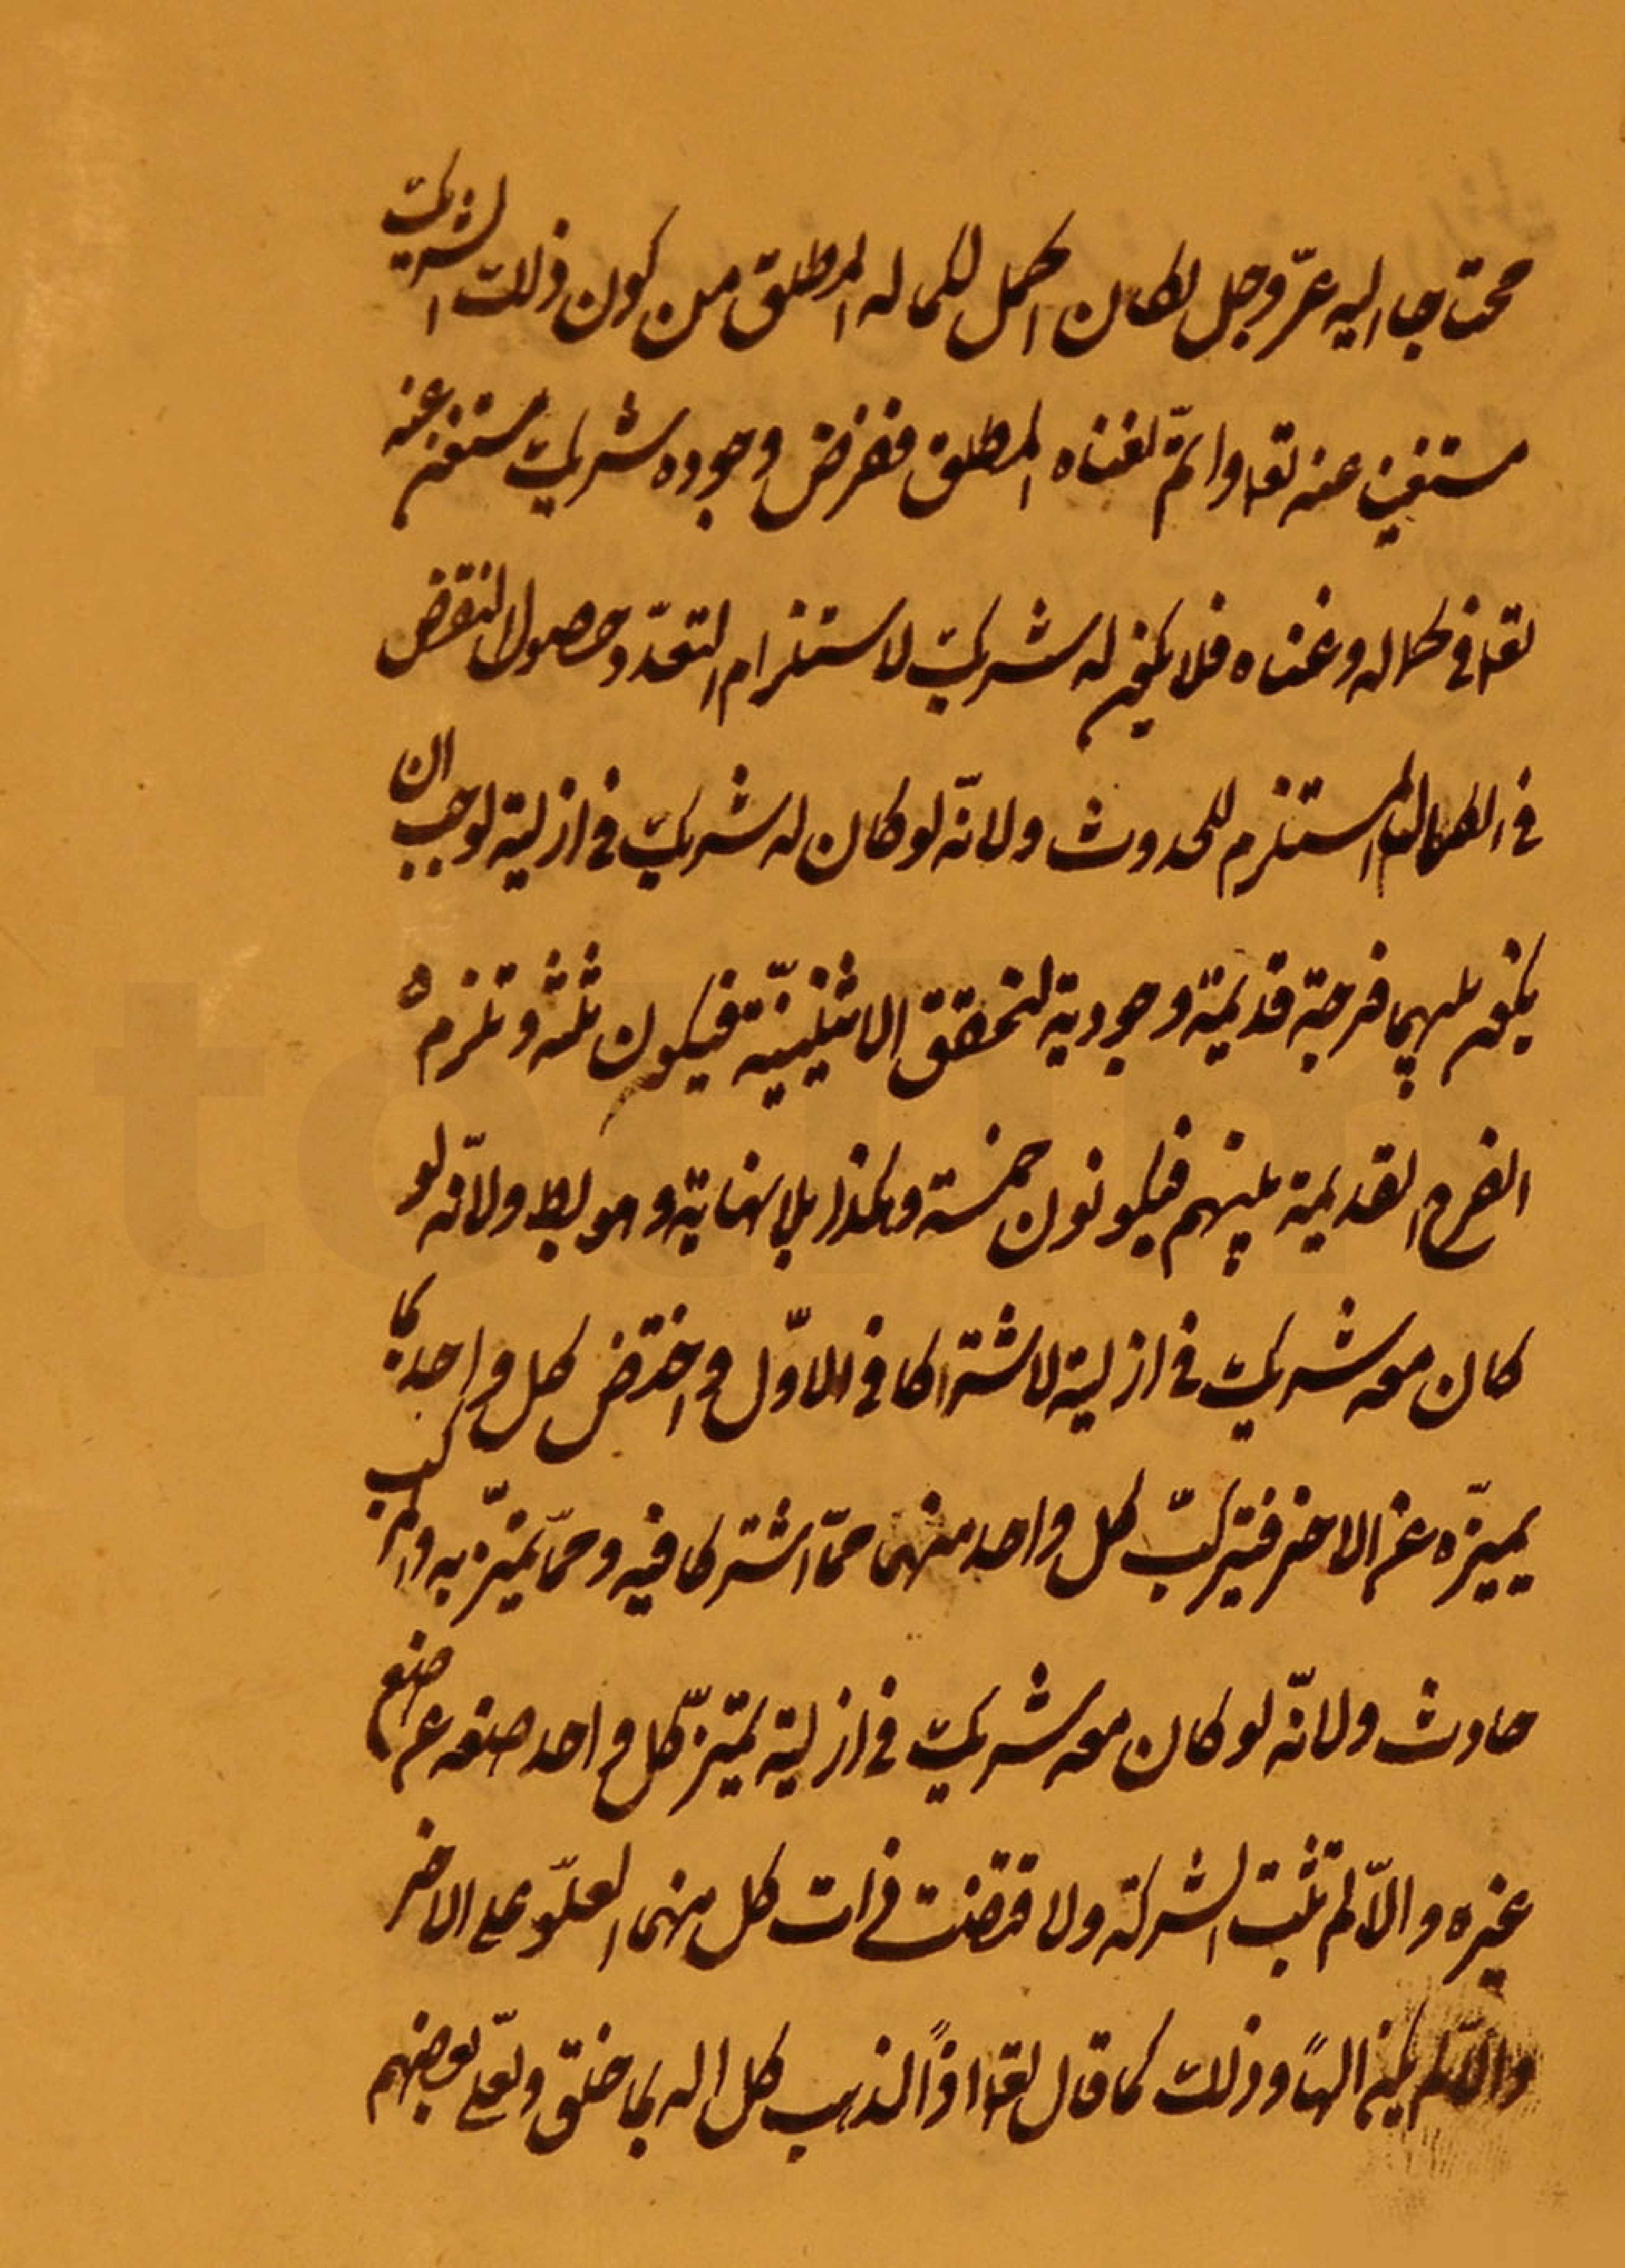 محتاجا اليه عزّ وجل لكان اكمل لكماله المطلق من كون ذلك الشريك
مستغن عنه تعا واتمّ لغناه المطلق ففرض وجود شريك مستغن عنه
تعا في كماله وغناه فلا يكن له شريك لاستلزام التعدّد حصول النقض
في الكمال المستلزم للحدوث ولانّه لو كان له شريك في ازلية لوجب ان
يكون بينهما فرجة قديمة وجودية لتحقق الاثنينيّة فيكون ثلثه وتلزم ه
الفرج القديمة بينهم فيكونون خمسة وهكذا بلا نهاية وهو بط ولانّه لو
كان معه شريك في ازلية لاشتراكا في الاوّل واختص كل واحد بما
يميّزه عن الاخر فيتركّب كل واحد منهما ممّا اشتركا فيه وممّا تميّز به والمركب
حادث ولانّه لو كان معه شريك في ازلية لتميّز كل واحد صنعه عن صنع
غيره والّا لم تثبت الشركة ولاقتضت ذات كل منهما العلوّ على الاخر
والّا لم يكن الهاً وذلك كما قال تعا اذاً لذهب كل اله بما خلق ولعلى بعضهم